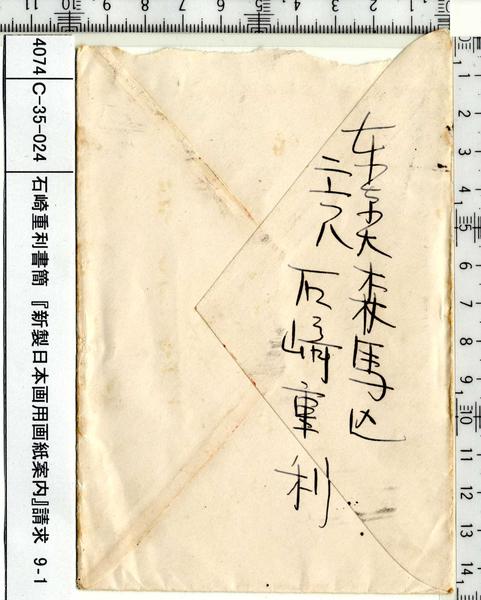 11 10 9 8 7 6 5 4 3 2 1
1 2 3 4 5 6 7 8 9 10 11 12 13 14
东京大森馬込
石崎重利
4074 C-35-024 石崎重利書簡 『新製日本画用画紙案内』請求 9-1